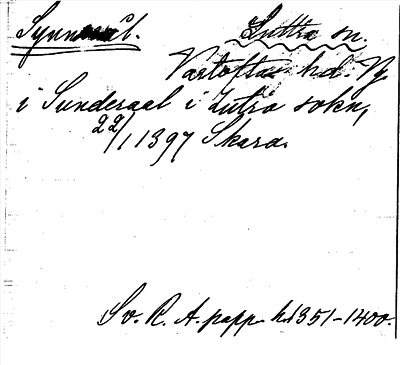 Synnerål. Luttra sn.
Vartofta hd. Vg.
i Sunderaal i Lutra sokn,
22/1 1397 Skara.
Sv. R. A. papp h. 1351-1400.